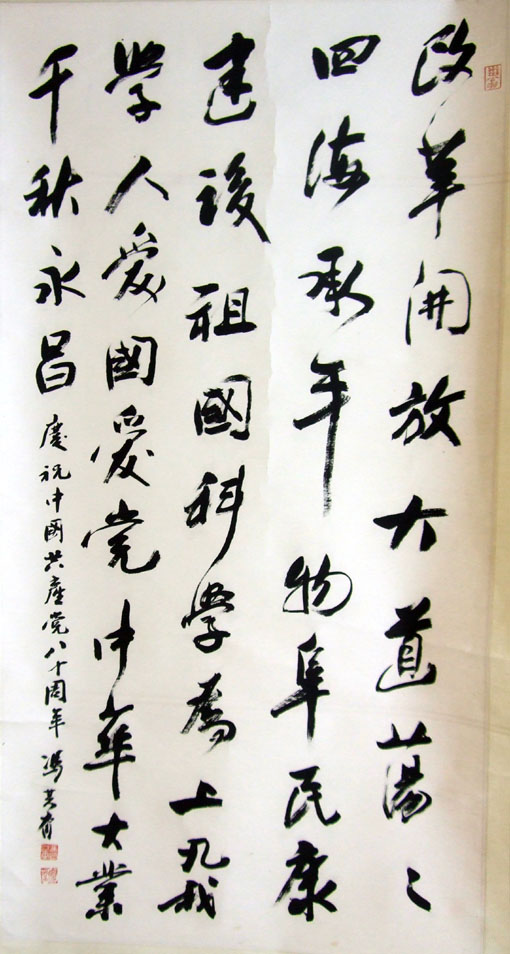 改革開放大道蕩〻
四海承平物阜民康
建設祖國科學為上凡我
學人愛國愛党中華大業
千秋永昌 慶祝中國共產党八十周年 馮